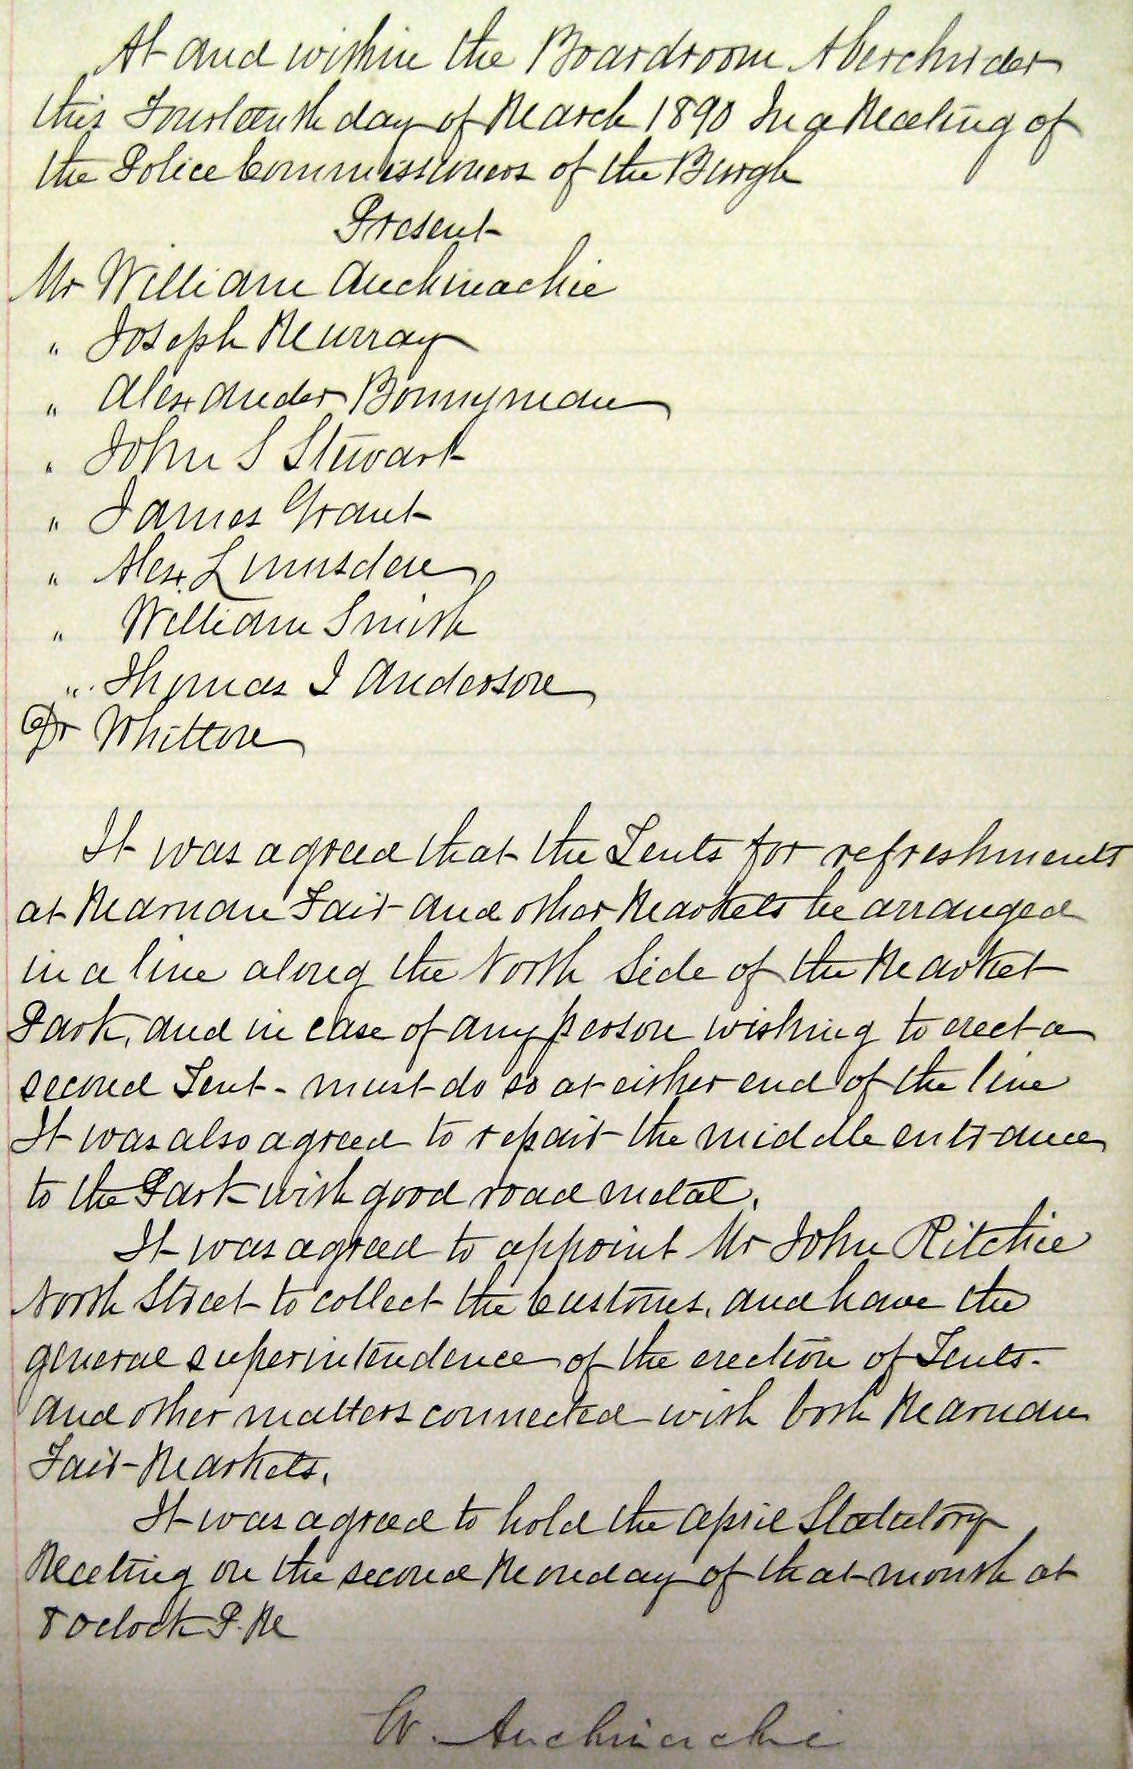 At and within the Boardroom Aberchirder
this Fourteenth day of March 1890 In a Meeting of
the Police Commissioners of the Burgh
Present
Mr William Auchinachie
" Joseph Murray
" Alexander Bonnyman
" John S Stewart
" James Grant
" Alex. Lumsden
" William Smith
" Thomas I Anderson
Dr Whitton
It was agreed that the Tents for refreshments
at Marnan Fair and other Markets be arranged
in a line along the North Side of the Market
Park, and in case of any person wishing to erect a
second Tent - must do so at either end of the line
It was also agreed to repair the middle entrance
to the Park with good road metal.
It was agreed to appoint Mr John Ritchie
North Street to collect the Customs, and have the
general superintendence of the erection of Tents -
and other matters connected with both Marnan
Fair - Markets.
It was agreed to hold the April Statutory
Meeting on the second Monday of that month at
8 oclock P.M
W. Auchinachie